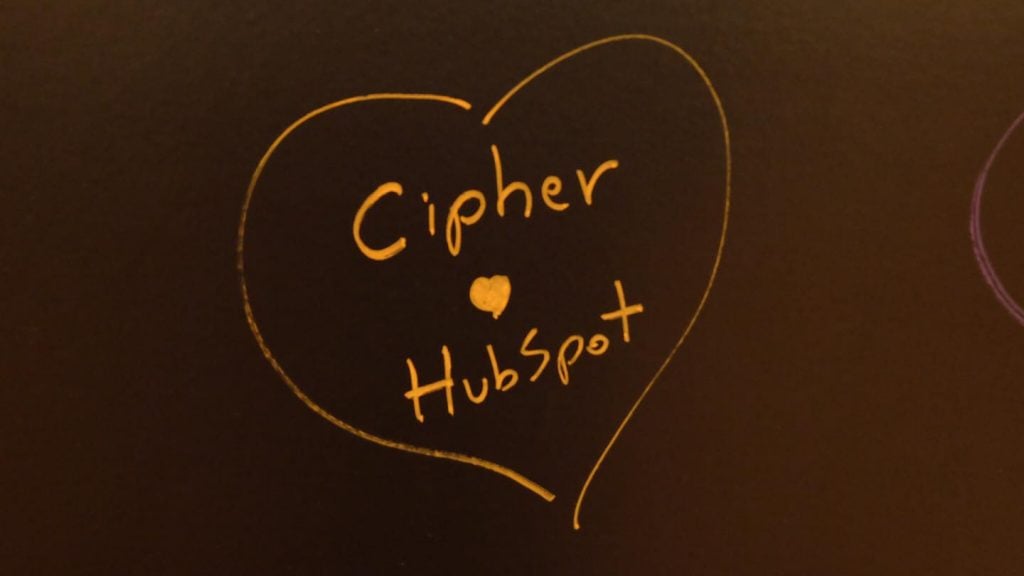 Cipher
HubSpot